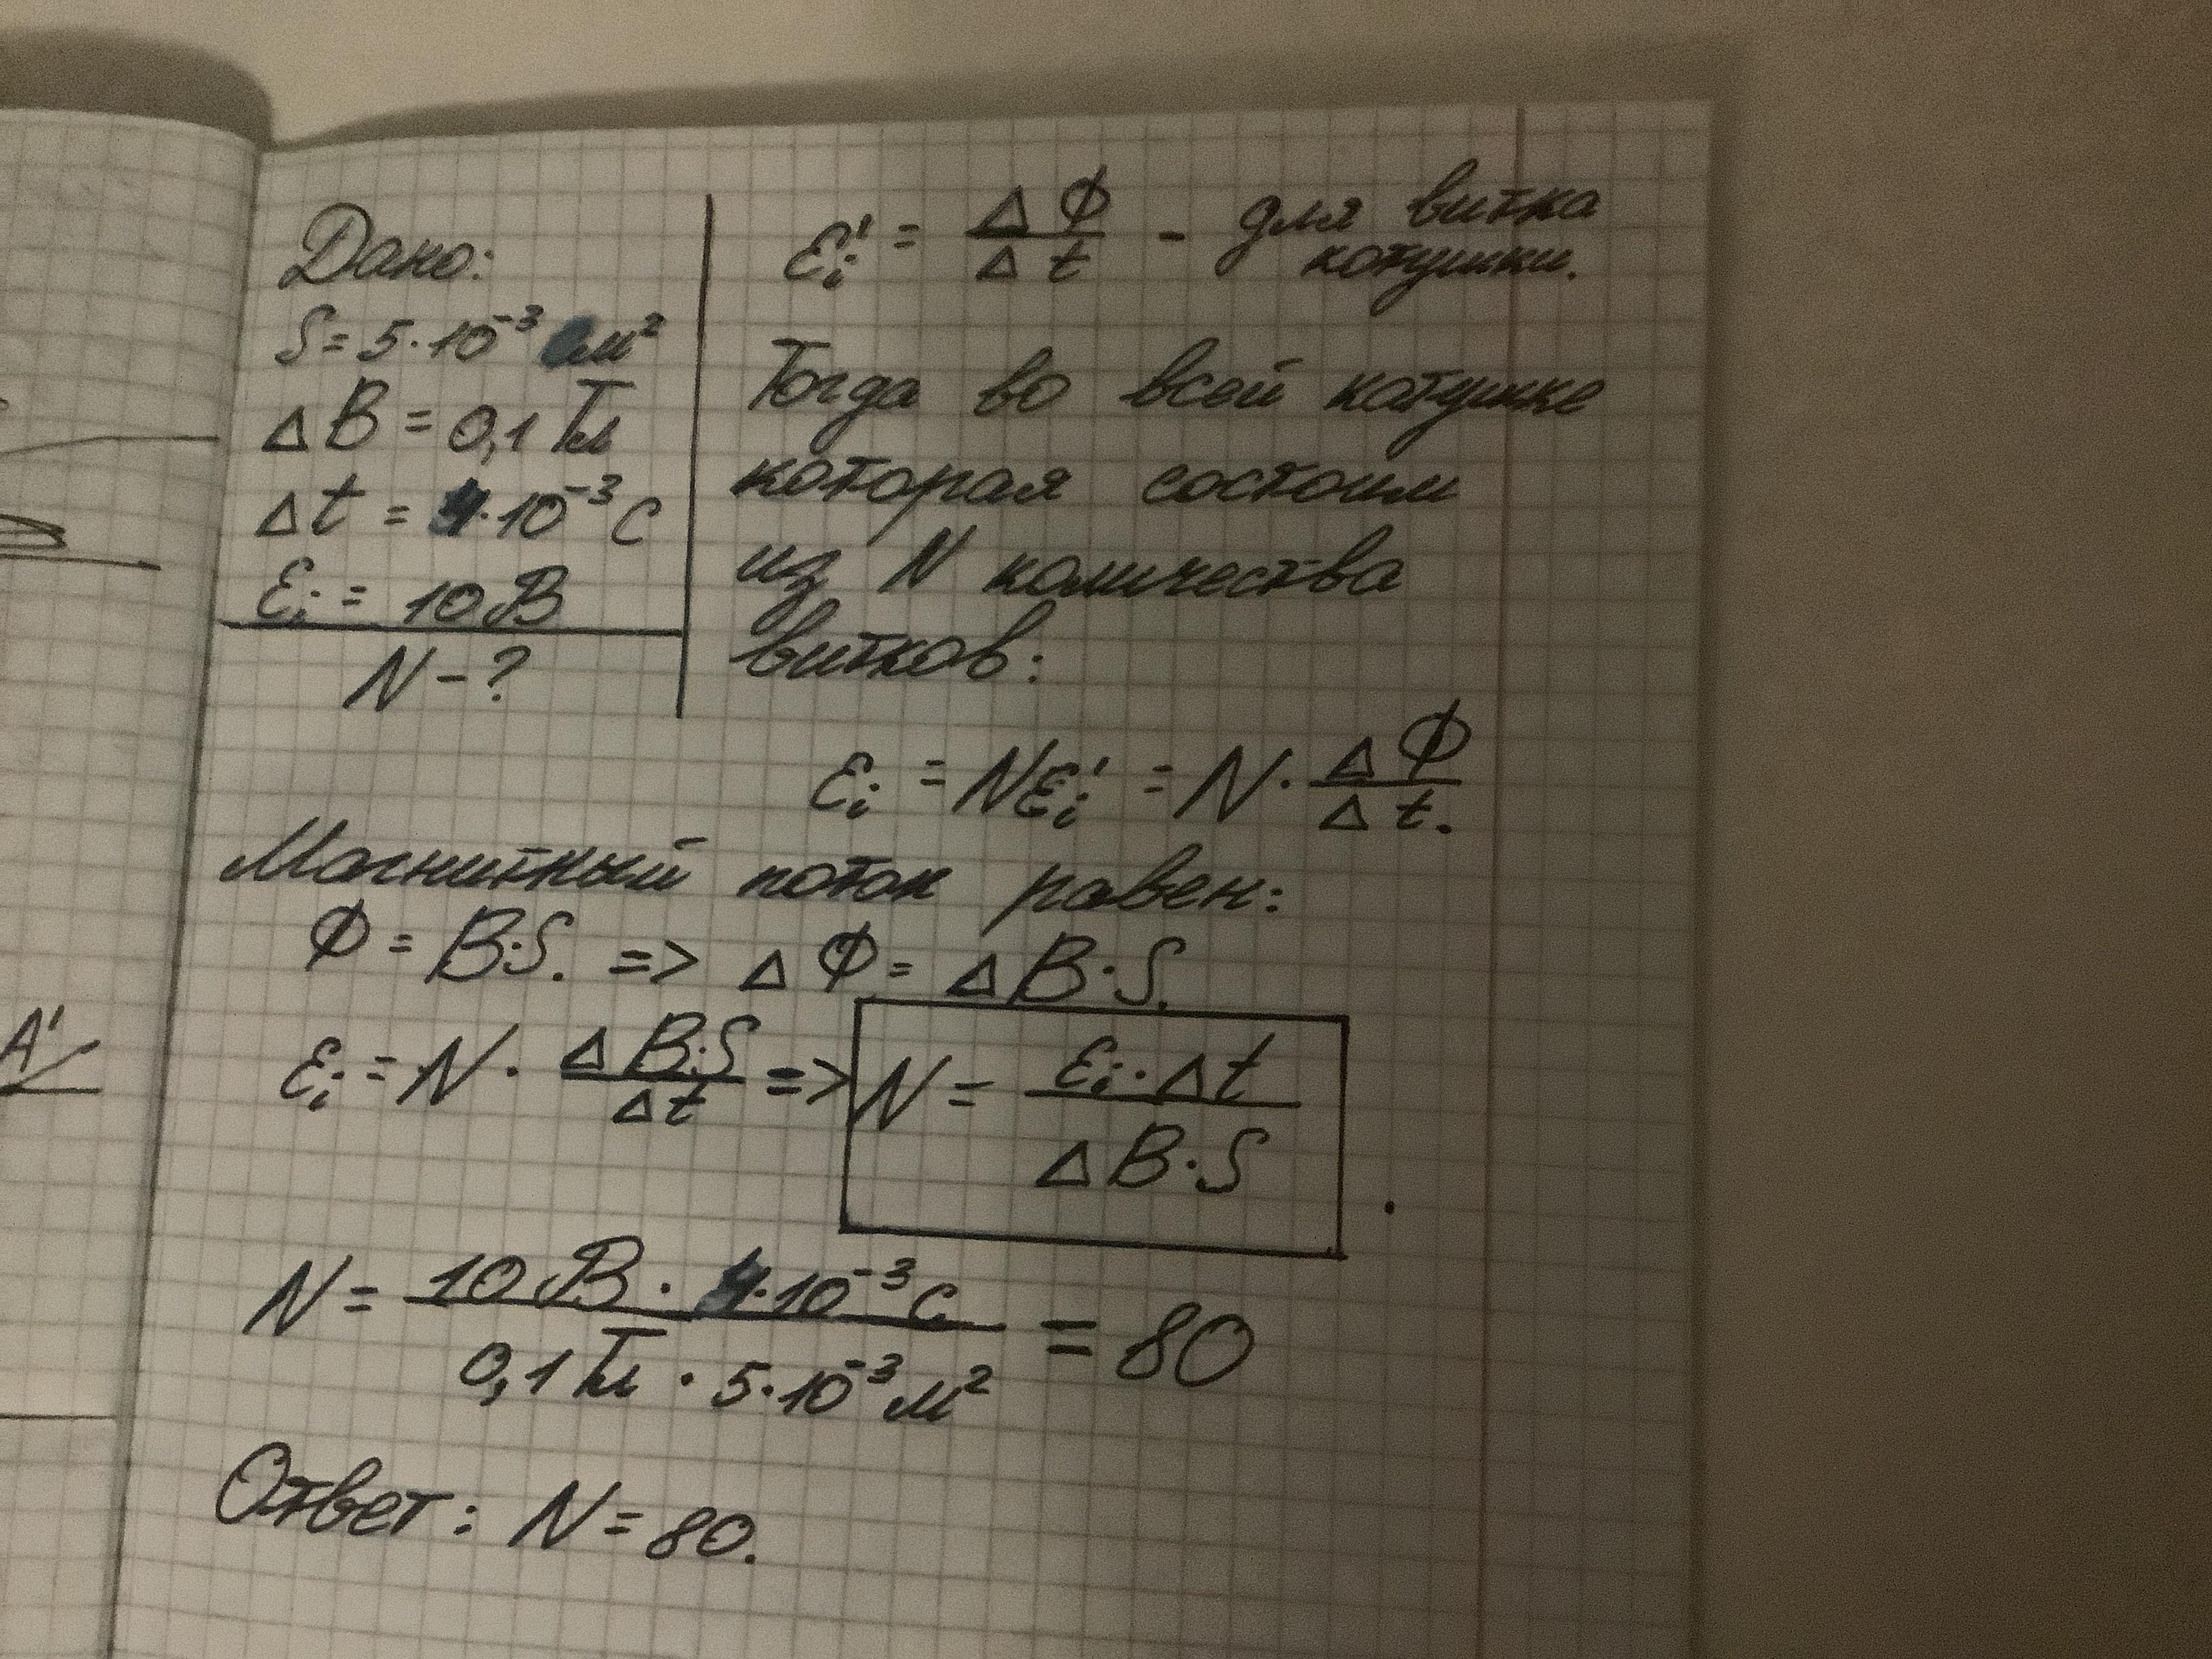 Дано:
S = 5·10⁻³ м²
ΔB = 0,1 Тл
Δt = 4·10⁻³ с
Ɛi = 10 В
N - ?
Ɛi' = ΔФ / Δt - для витка
котушки.
Тогда во всей катушке
которая состоим
из N количества
витков:
Ɛi = NƐi' = N · ΔФ / Δt.
Магнитный поток равен:
Ф = B·S. => ΔФ = ΔB·S.
Ɛi = N · ΔB·S / Δt => N = Ɛi·Δt / ΔB·S .
N = 10 В · 4·10⁻³ с / 0,1 Тл · 5·10⁻³ м² = 80
Ответ: N = 80.
A'